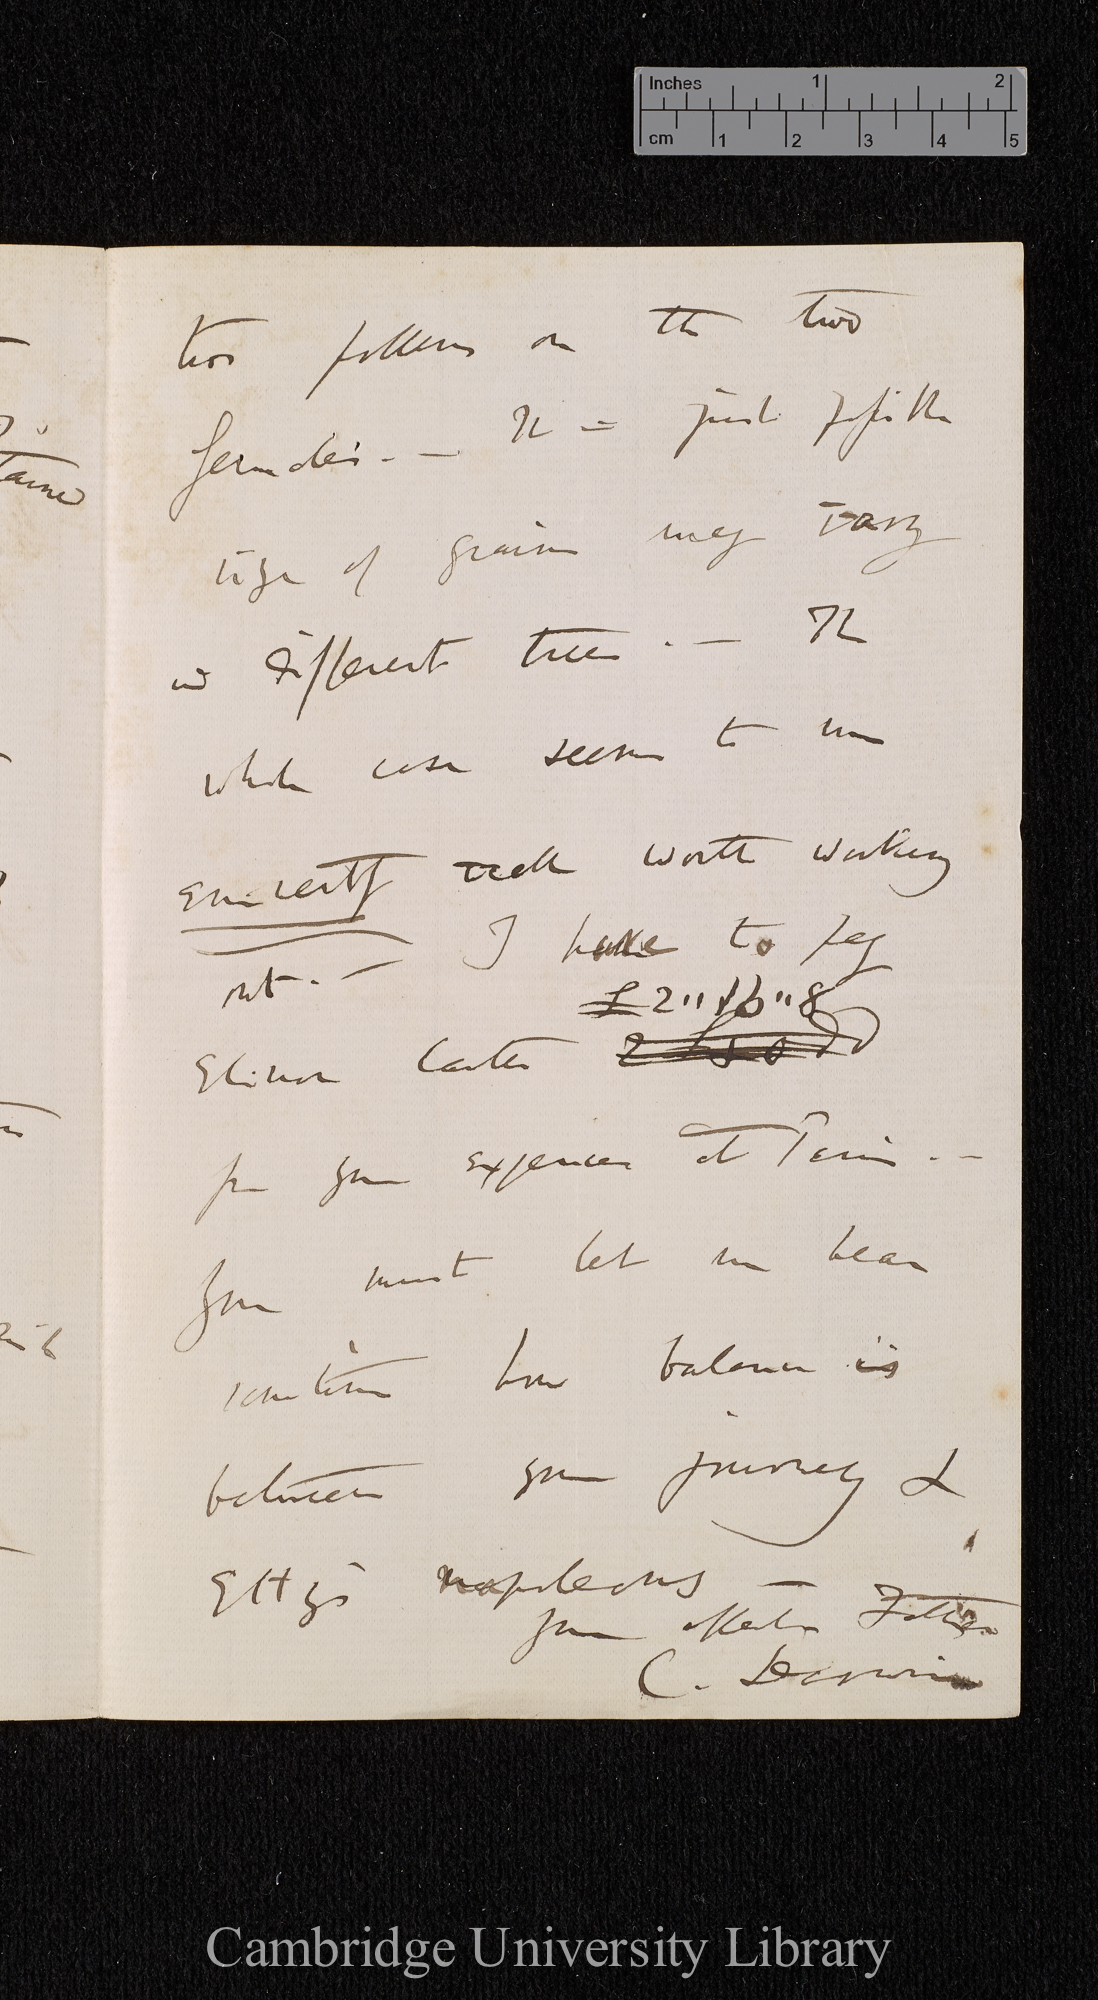 Inches 1 2
cm 1 2 3 4 5
two pollens on the two
females.— It = just possible
size of grains may vary
in different trees.— The
whole case seems to me
eminently well worth working
out.— I have to pay
£2"16"8
Elinor Carter
for your expenses at Paris.—
You must let me hear
sometime how balance is
between your journey &
Etty's napoleons —
Your affecte Father
C. Darwin
Cambridge University Library